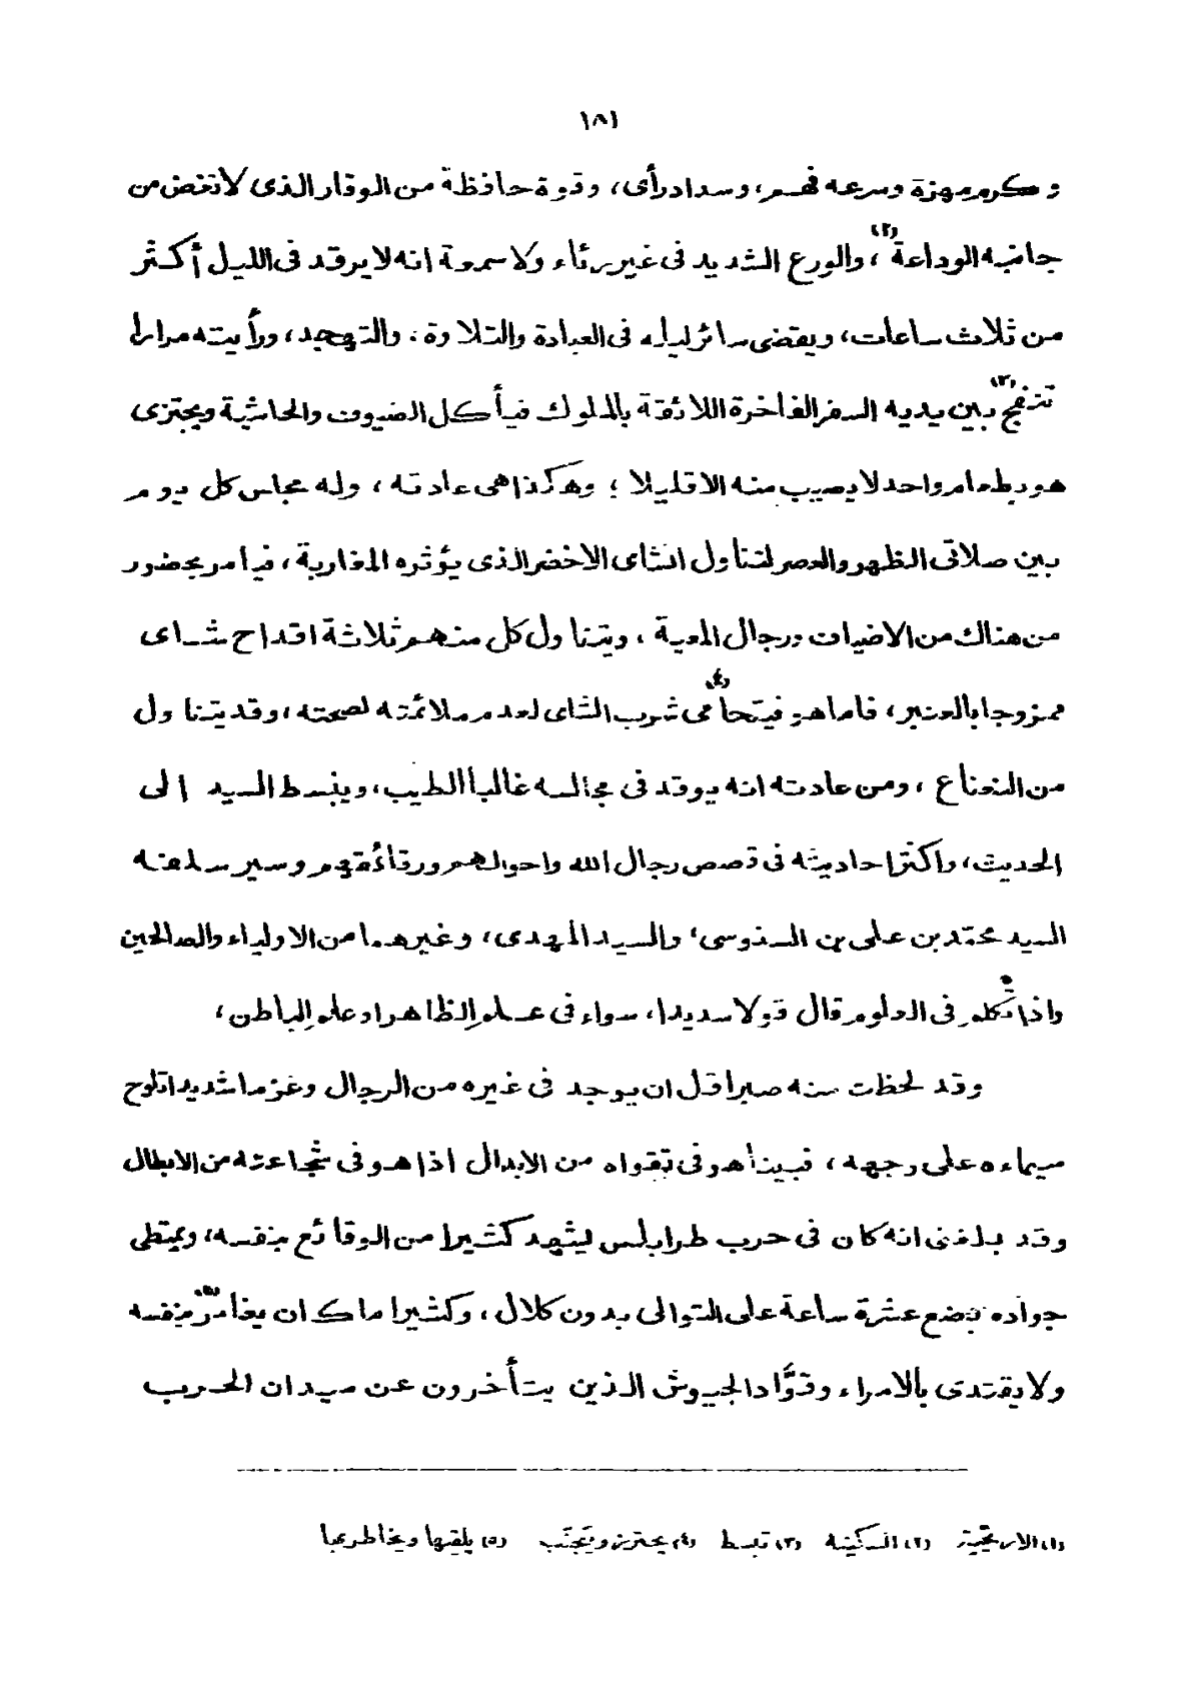 ١٨١
وكرم مهزة وسرعه فهم، وسداد رأى، وقوة حافظة من الوقار الذى لا تغض من
جانبه الوداعة (٢)، والورع الشديد فى غير رئاء ولا سمعة انه لا يرقد فى الليل أكثر
من ثلاث ساعات، ويقضى سائر ليله فى العبادة والتلاوة، والتهجد، ورأيته مرارا
تنفج (٣) بين يديه السفر الفاخرة اللائقة بالملوك فيأكل الضيوف والحاشية ويجتزى
هو بطعام واحد لا يصيب منه الا قليلا ؛ وهكذا هى عادته ، وله مجلس كل يوم
بين صلاتى الظهر والعصر لتناول الشاى الاخضر الذى يؤثره المغاربة، فيامر بحضور
من هناك من الاضياف ورجال المعية ، ويتناول كل منهم ثلاثة اقداح شاى
ممزوجا بالعنبر، فاما هو فيتحامى (٤) شرب الشاى لعدم ملائمته لصحته، وقد يتناول
من النعناع ، ومن عادته انه يوقد فى مجالسه غالبا الطيب، وينبسط السيد الى
الحديث، واكثر احاديثه فى قصص رجال الله واحوالهم ورقائقهم وسير سلفه
السيد محمّد بن على بن السنوسى، والسيد المهدى، وغيرهما من الاولياء والصالحين
واذا تكلم فى العلوم قال قولا سديدا، سواء فى علم الظاهر او علم الباطن،
وقد لحظت منه صبرا قل ان يوجد فى غيره من الرجال وعزما شديدا تلوح
سيماءه على وجهه ، فبينا هو فى تقواه من الابدال اذا هو فى شجاعته من الابطال
وقد بلغنى انه كان فى حرب طرابلس ليشهد كثيرا من الوقائع بنفسه، ويمتطى
جواده بضع عشرة ساعة على التوالى بدون كلال، وكثيرا ما كان يغامر (٥) بنفسه
ولا يقتدى بالامراء وقوَّاد الجيوش الذين يتأخرون عن ميدان الحرب
(١) الاريحيّة (٢) السكينة (٣) تبسط (٤) يحترز ويتجنّب (٥) يلقيها ويخاطر بها